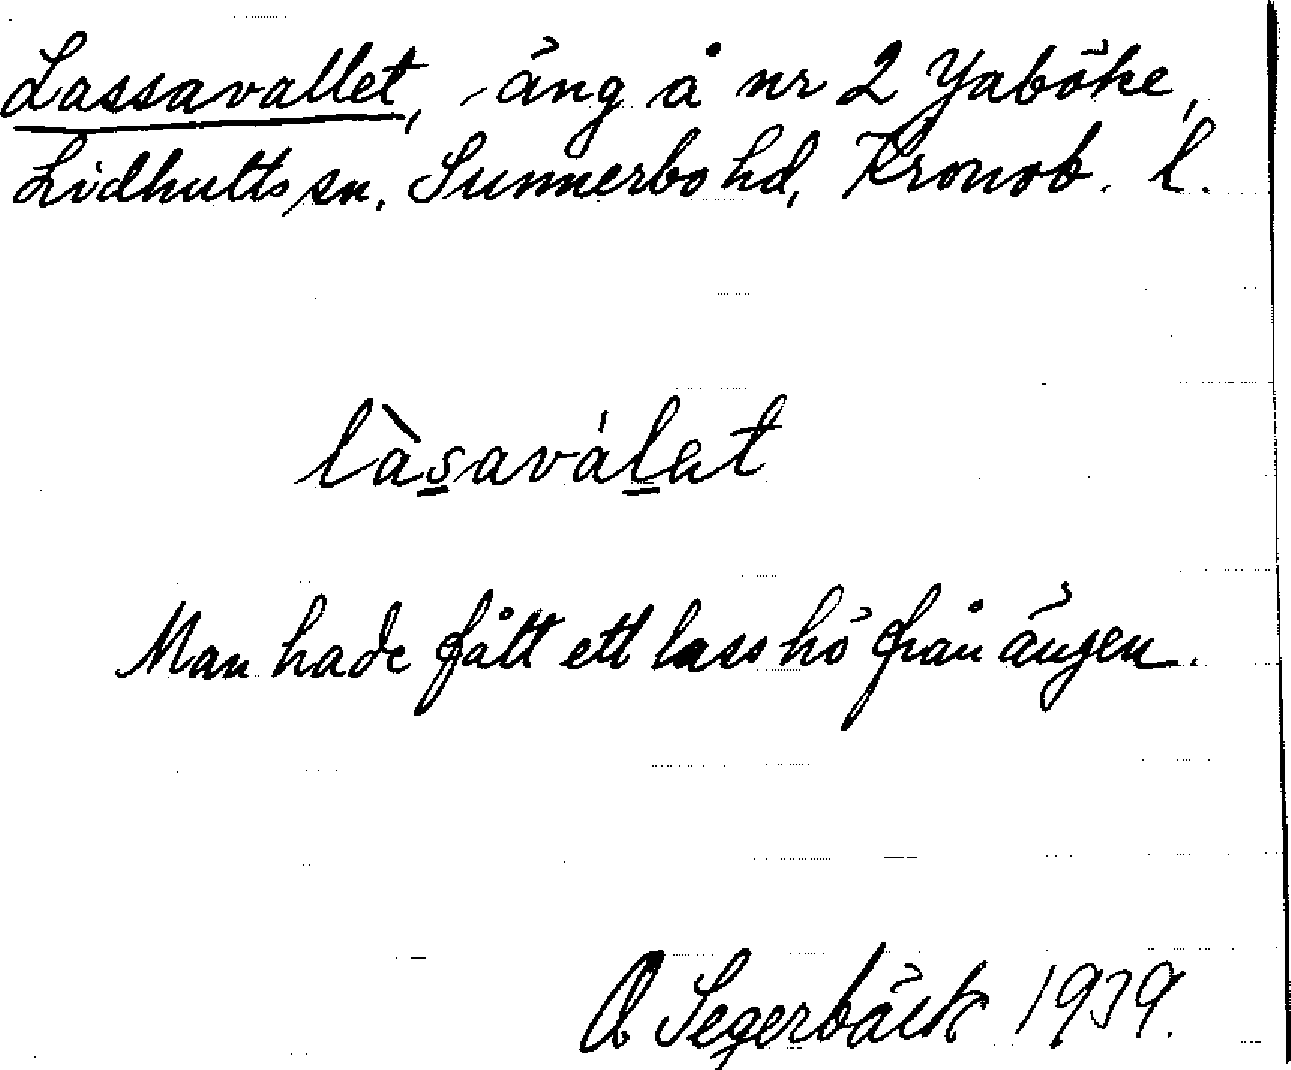 Lassavallet, äng å nr 2 Yaböke,
Lidhults sn, Sunnerbo hd, Kronob. l.
làsaválet
Man hade fått ett lass hö från ängen.
A Segerbäck 1939.